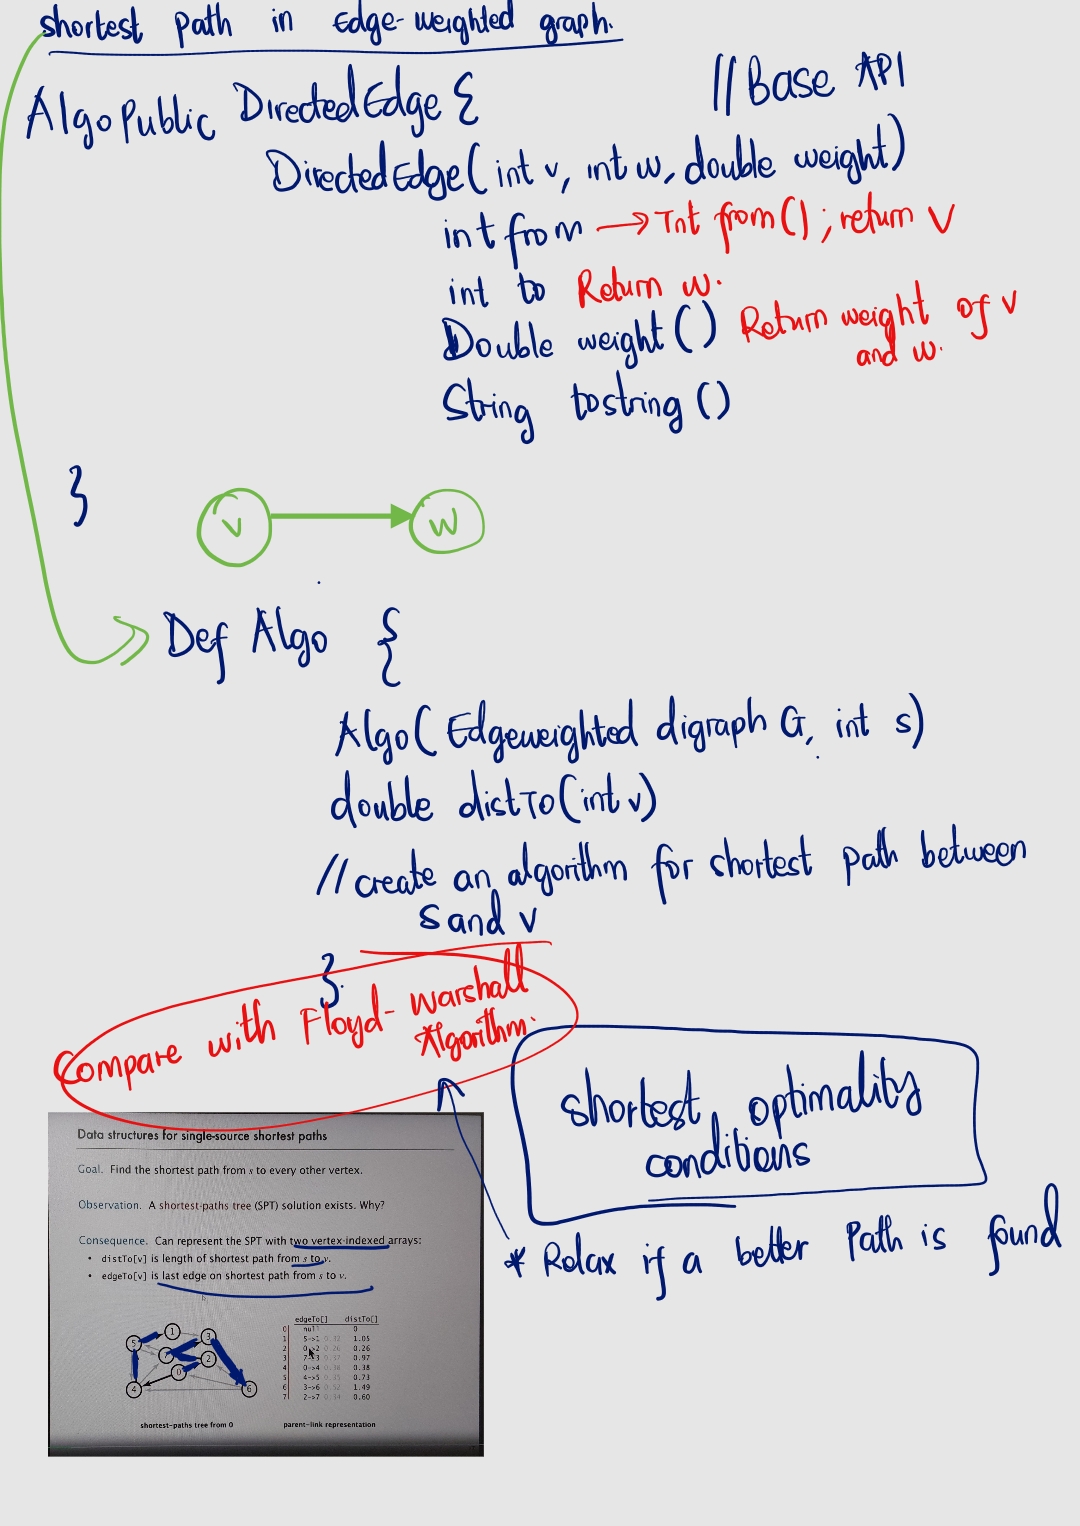 shortest path in Edge-weighted graph.
Algo Public DirectedEdge { //Base API
DirectedEdge(int v, int w, double weight)
int from → Int from() ; return v
int to Return w.
Double weight() Return weight of v
and w.
String tostring()
}
v w
Def Algo {
Algo( Edgeweighted digraph G, int s)
double distTo(int v)
//create an algorithm for shortest path between
s and v
}.
Compare with Floyd-Warshall
Algorithm.
shortest optimality
conditions
* Relax if a better Path is found
Data structures for single-source shortest paths
Goal. Find the shortest path from s to every other vertex.
Observation. A shortest-paths tree (SPT) solution exists. Why?
Consequence. Can represent the SPT with two vertex-indexed arrays:
• distTo[v] is length of shortest path from s to v.
• edgeTo[v] is last edge on shortest path from s to v.
edgeTo[] distTo[]
0 null 0
1 5->1 0.32 1.05
2 0->2 0.26 0.26
3 7->3 0.37 0.97
4 0->4 0.38 0.38
5 4->5 0.35 0.73
6 3->6 0.52 1.49
7 2->7 0.34 0.60
1
5 3
7 2
0
4 6
shortest-paths tree from 0
parent-link representation